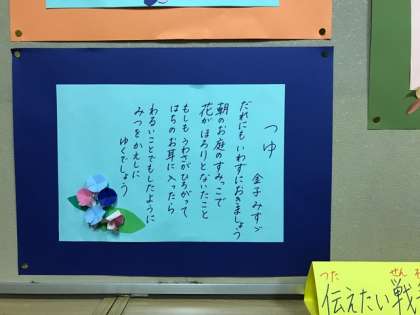 つゆ
金子みすゞ
だれにも いわずにおきましょう
朝のお庭のすみっこで
花がほろりとないたこと
もしも うわさがひろがって
はちのお耳に入ったら
わるいことでもしたように
みつをかえしに
ゆくでしょう
つた
せん
伝えたい戦